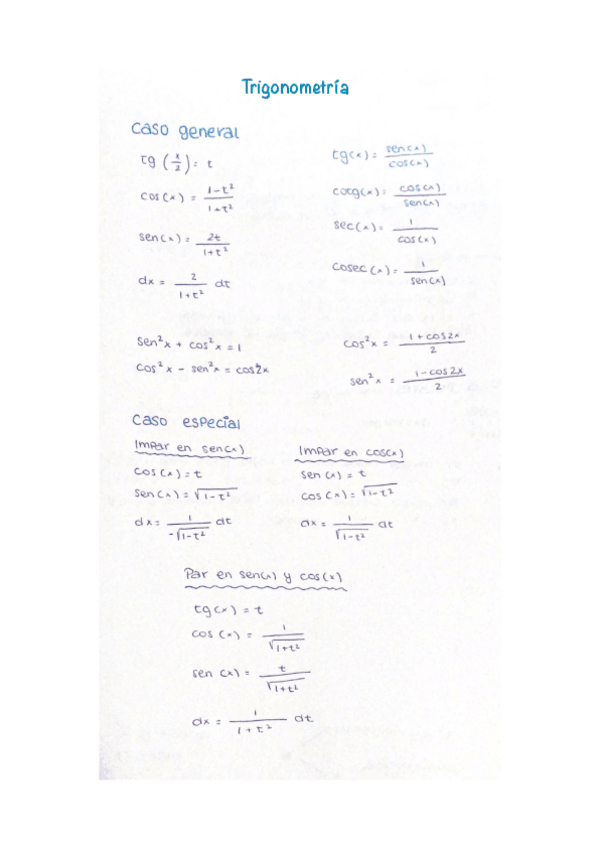 Trigonometría
caso general
tg (x/2) = t
cos(x) = (1-t²)/(1+t²)
sen(x) = 2t/(1+t²)
dx = 2/(1+t²) dt
tg(x) = sen(x)/cos(x)
cotg(x) = cos(x)/sen(x)
sec(x) = 1/cos(x)
cosec(x) = 1/sen(x)
sen²x + cos²x = 1
cos²x - sen²x = cos2x
cos²x = (1+cos2x)/2
sen²x = (1-cos2x)/2
caso especial
Impar en sen(x)
cos(x) = t
sen(x) = √(1-t²)
dx = 1/(-√(1-t²)) dt
Impar en cos(x)
sen(x) = t
cos(x) = √(1-t²)
dx = 1/√(1-t²) dt
Par en sen(x) y cos(x)
tg(x) = t
cos(x) = 1/√(1+t²)
sen(x) = t/√(1+t²)
dx = 1/(1+t²) dt